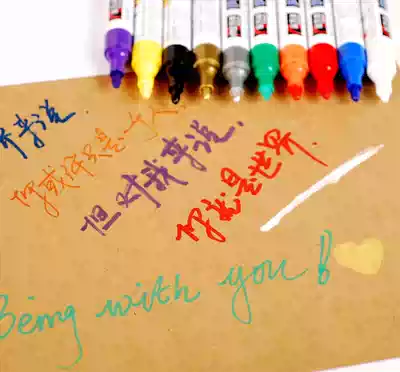 界来说.
你或许只是一个人
但对我来说.
你就是世界.
Being with you!